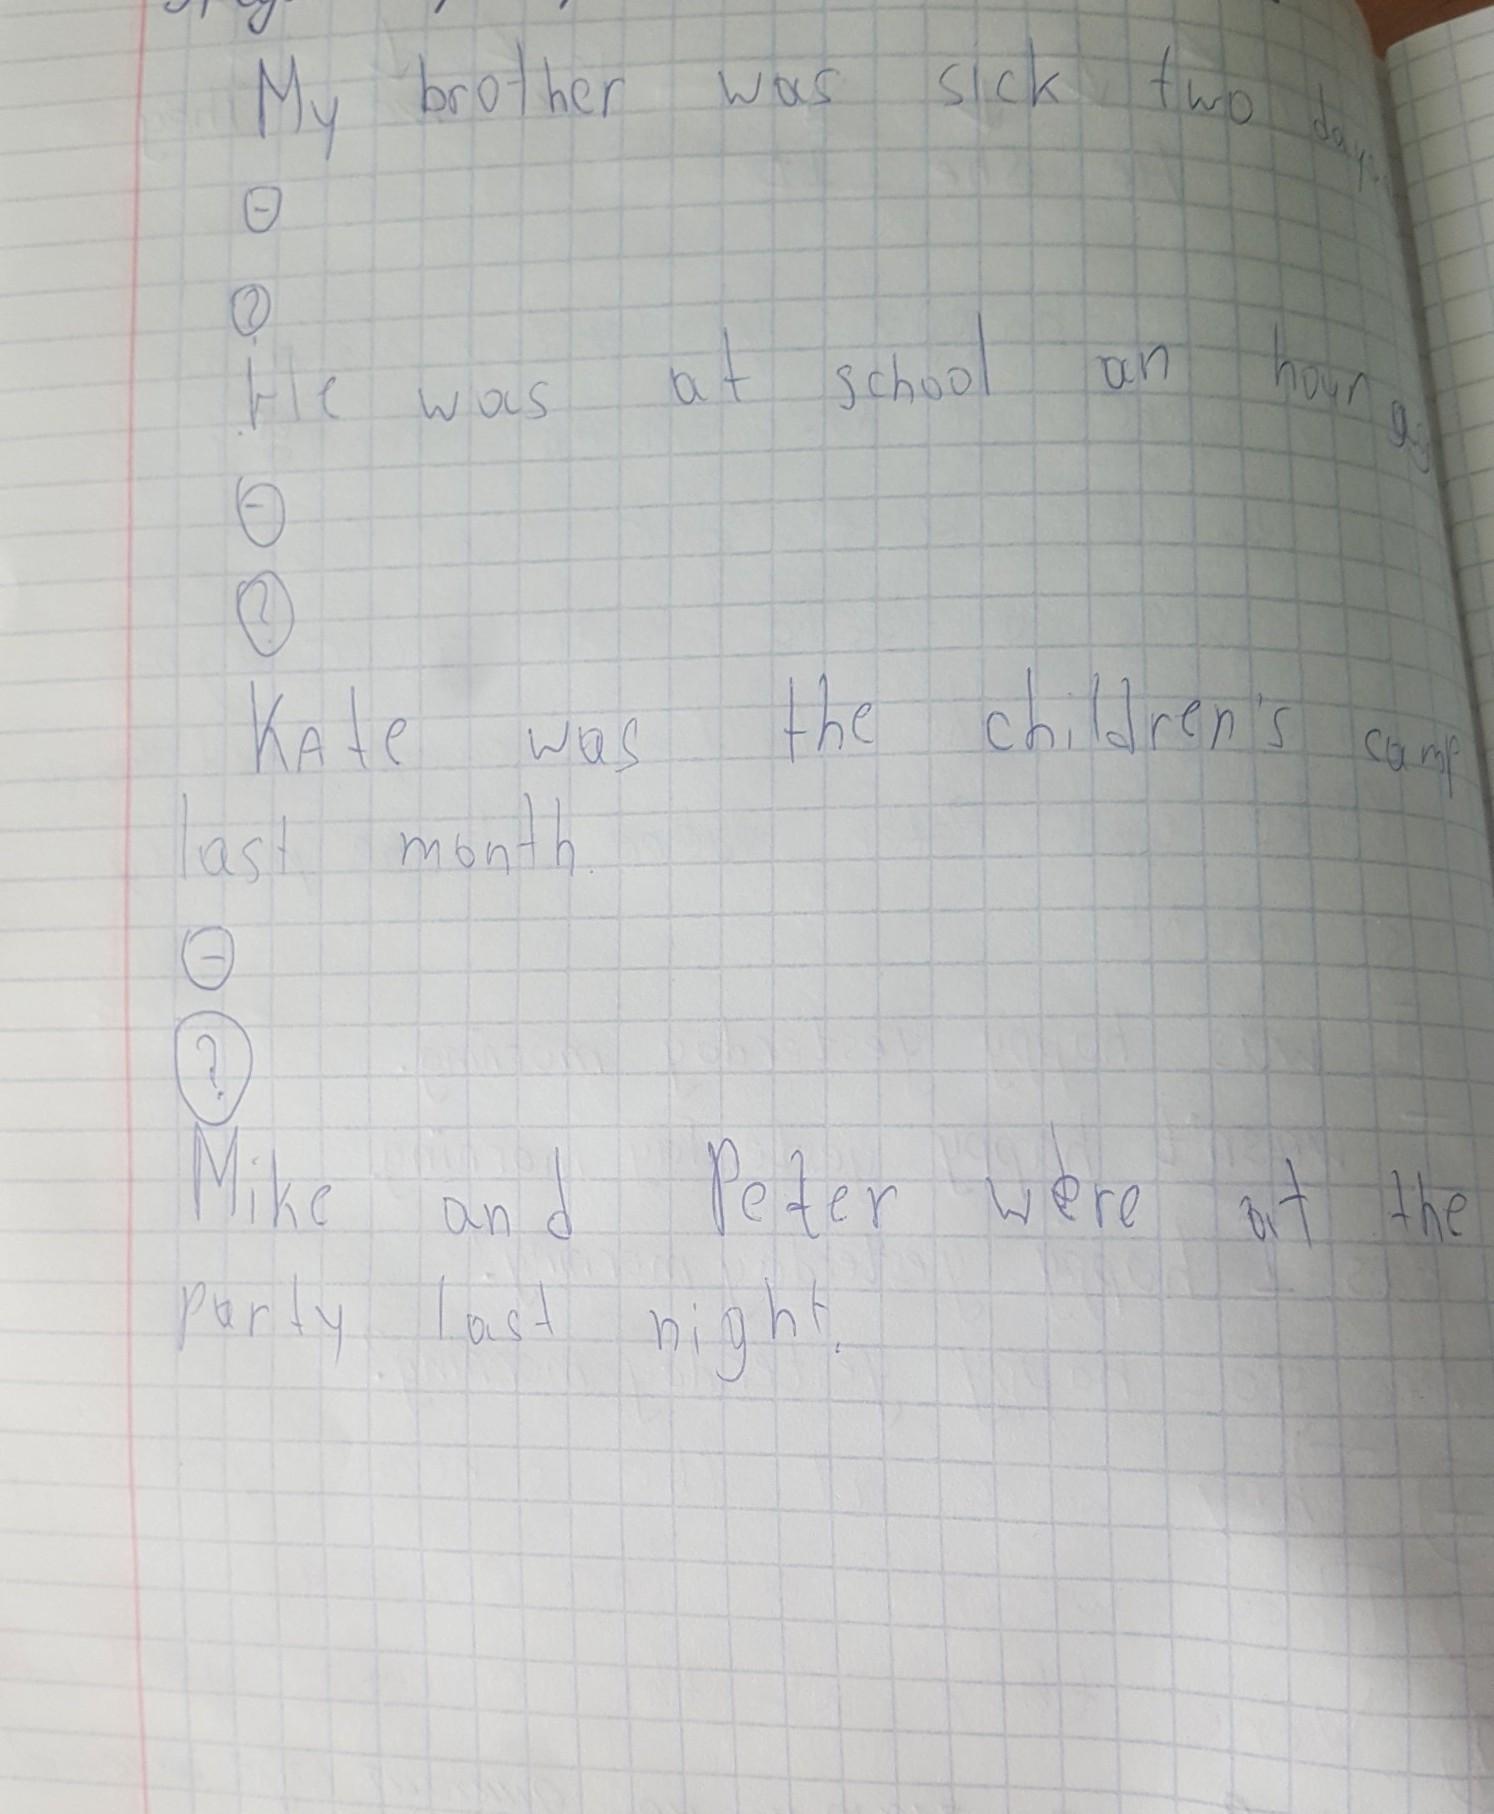 My brother was sick two day
⊖
?
He was at school an hour
⊖
?
Kate was the children's camp
last month.
⊖
?
Mike and Peter were at the
party last night.